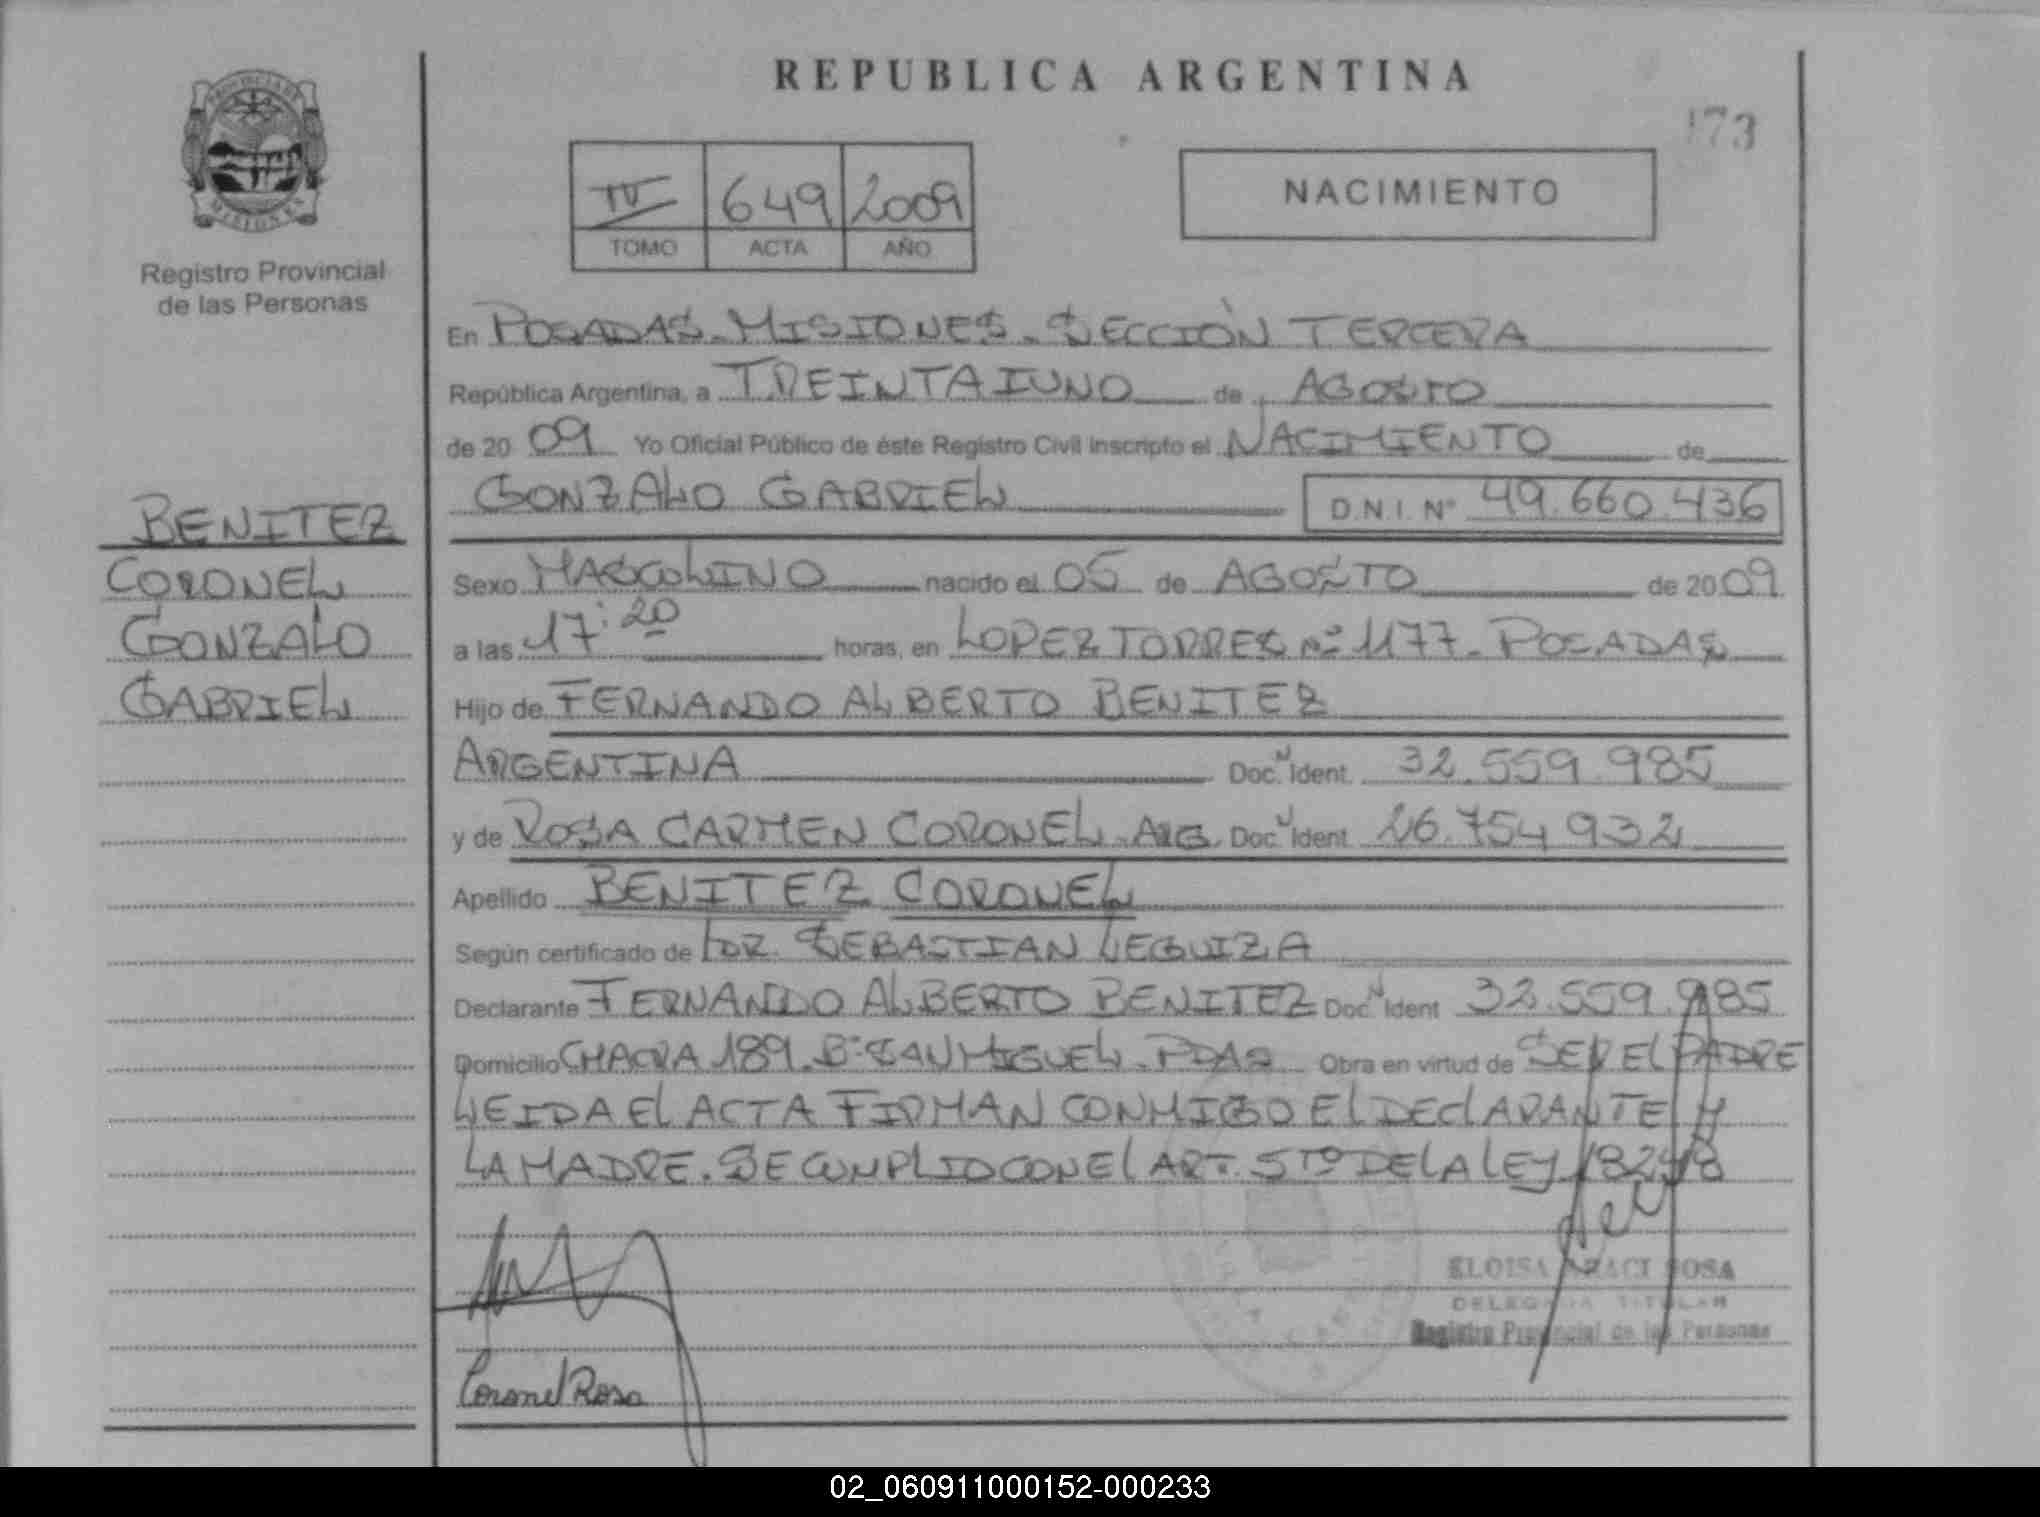 REPUBLICA ARGENTINA
173
PROVINCIA DE
MISIONES
Registro Provincial
de las Personas
IV 649 2009
TOMO ACTA AÑO
NACIMIENTO
En POSADAS - MISIONES - SECCIÓN TERCERA
República Argentina, a TREINTAIUNO de AGOSTO
de 20 09 Yo Oficial Público de éste Registro Civil Inscripto el NACIMIENTO de
GONZALO GABRIEL D.N.I. Nº 49.660.436
BENITEZ
CORONEL
GONZALO
GABRIEL
Sexo MASCULINO nacido el 05 de AGOSTO de 20 09
a las 17:20 horas, en LOPEZ TORRES Nº 1177 - POSADAS
Hijo de FERNANDO ALBERTO BENITEZ
ARGENTINA Doc. N Ident. 32.559.985
y de ROSA CARMEN CORONEL - ARG. Doc. N Ident. 26.754.932
Apellido BENITEZ CORONEL
Según certificado de DR. SEBASTIAN LEGUIZA
Declarante FERNANDO ALBERTO BENITEZ Doc. N Ident. 32.559.985
Domicilio CHACRA 189. Bº SAN MIGUEL - PDAS Obra en virtud de SER EL PADRE
LEIDA EL ACTA FIRMAN CONMIGO EL DECLARANTE Y
LA MADRE. SE CUMPLIO CON EL ART. 5TO DE LA LEY 18248
ELOISA ARACI SOSA
DELEGADA TITULAR
Registro Provincial de las Personas
Coronel Rosa
02_060911000152-000233